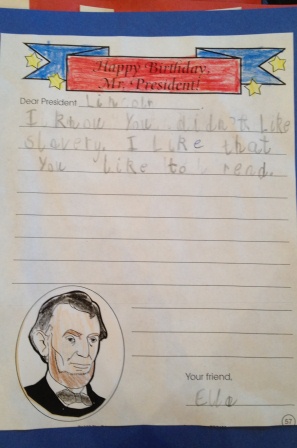 Happy Birthday,
Mr. President!
Dear President Lincoln.
I know you didn't like
slavery. I like that
you like to read.
Your friend,
Ella
57